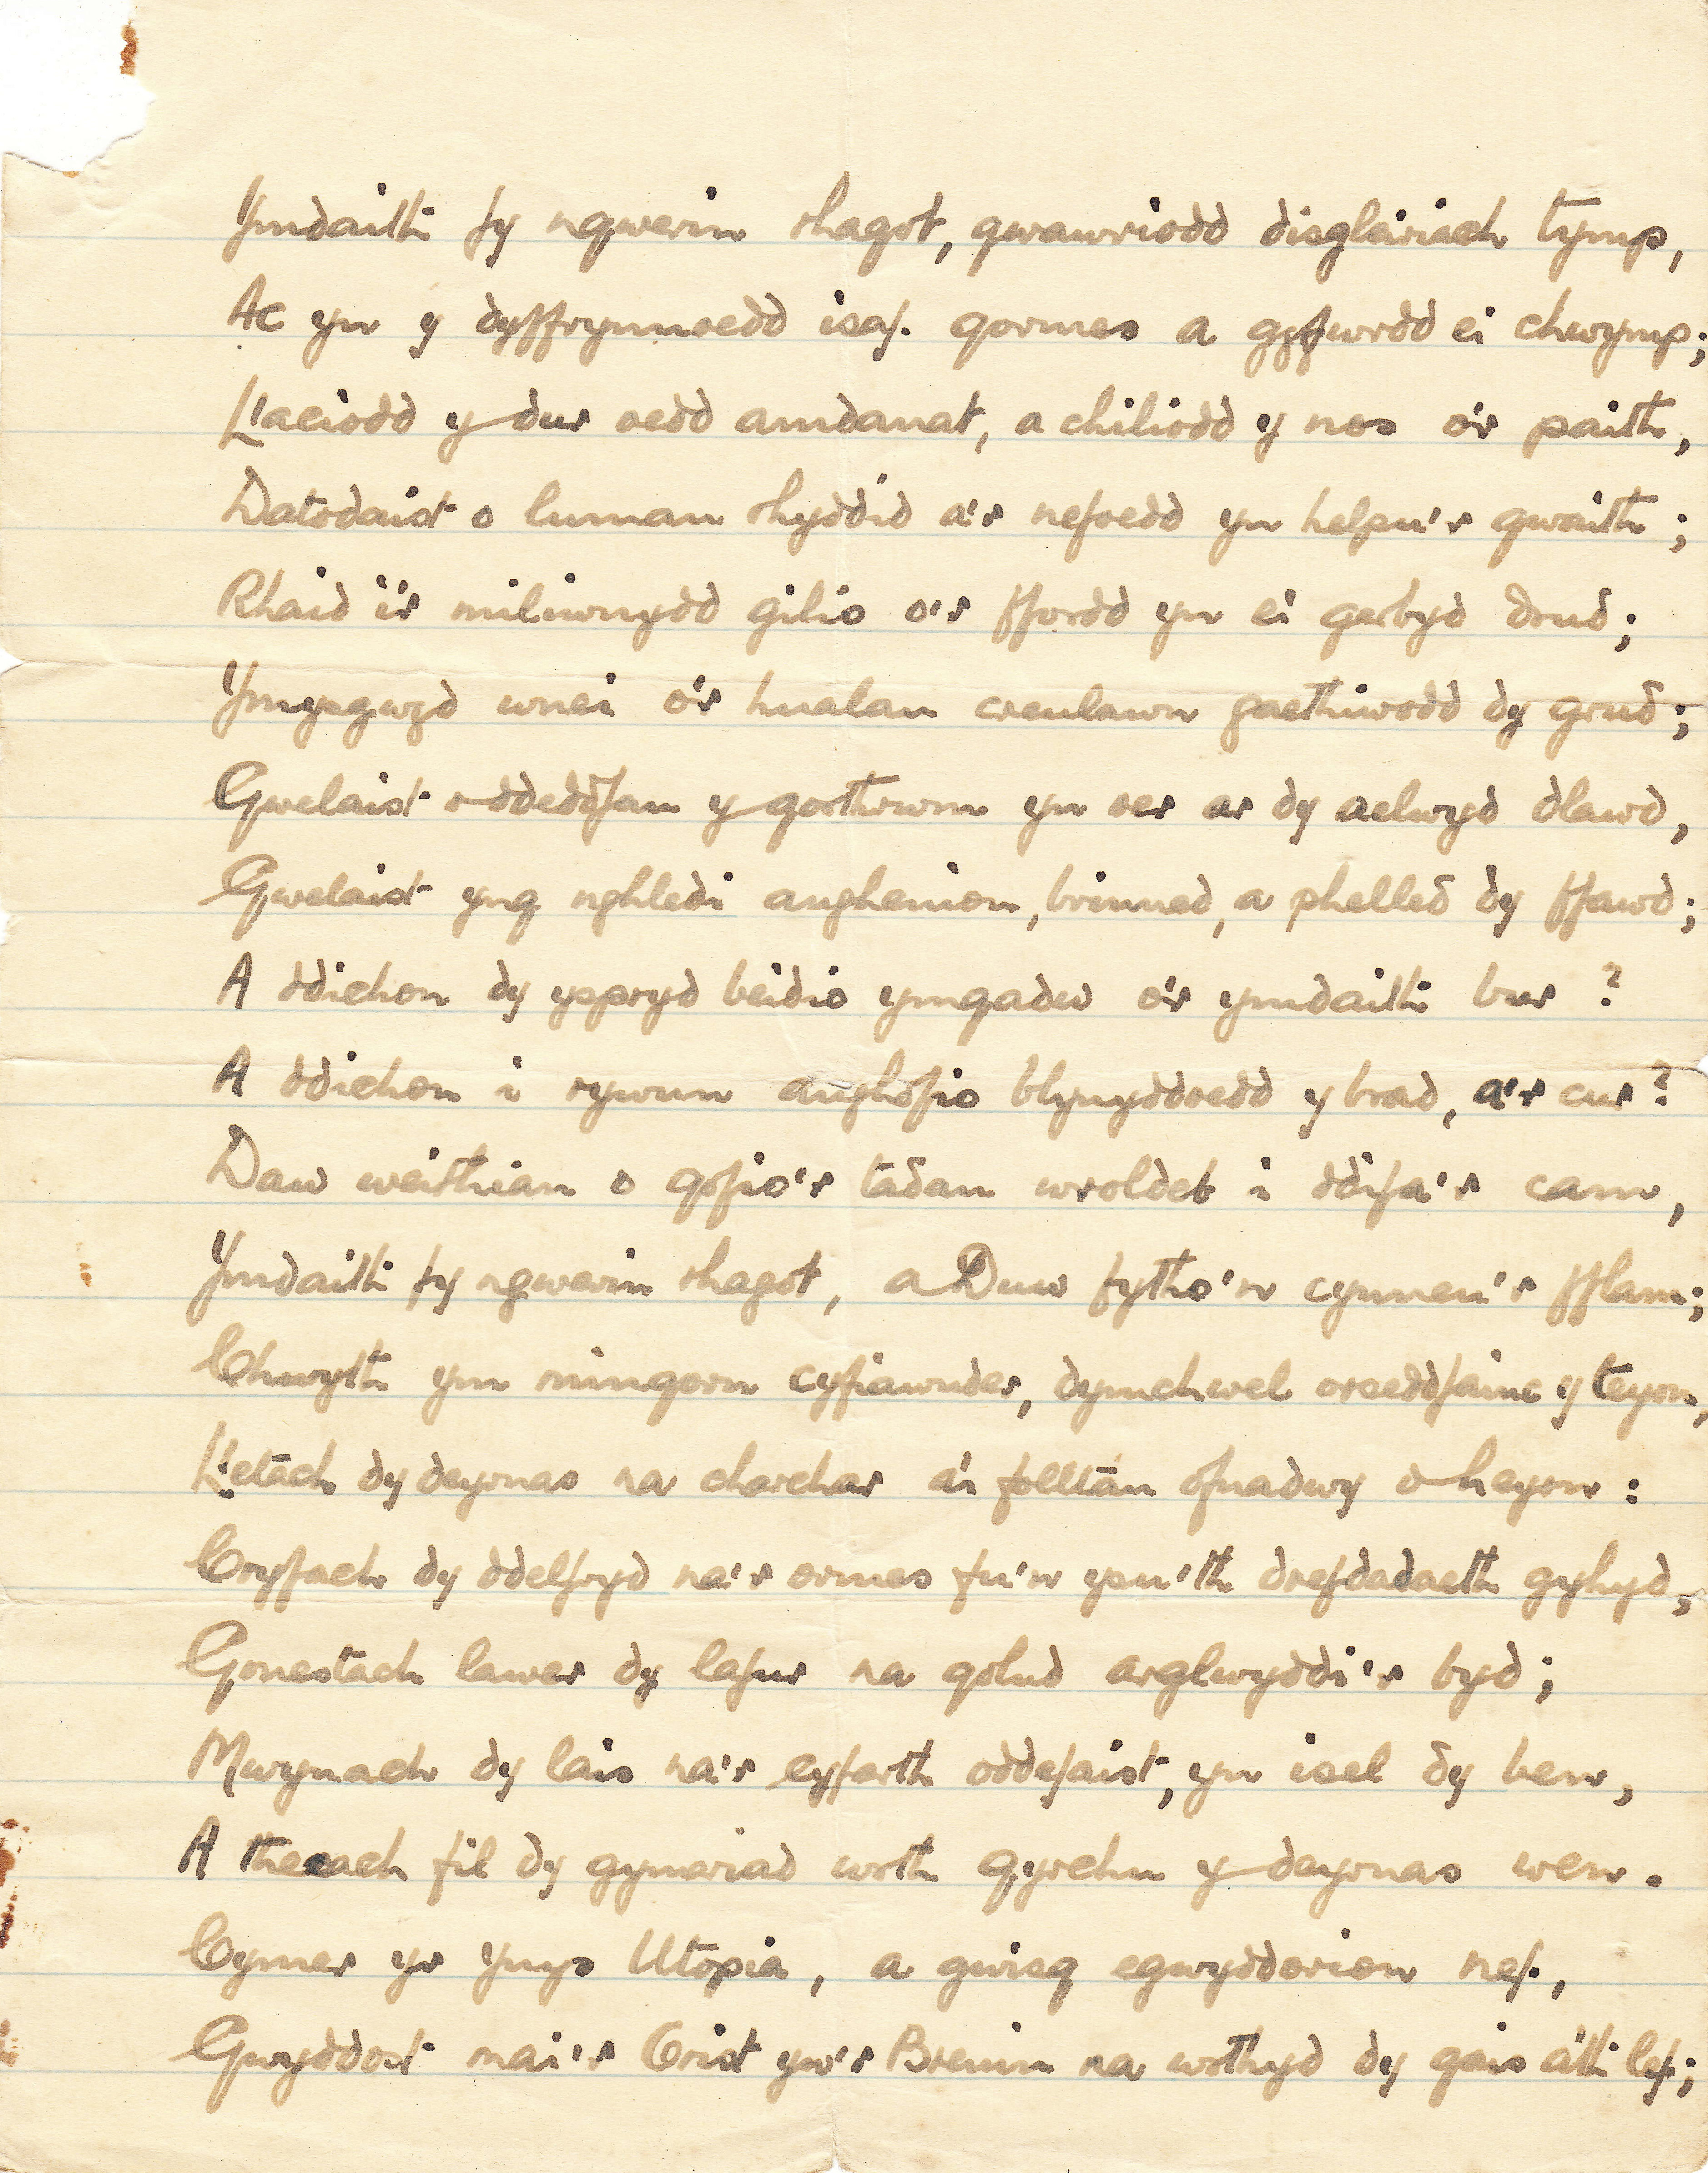 Ymdaith fy ngwerin rhagot, gwawriodd disgleiriach tymp,
Ac yn y dyffrynnoedd isaf. gormes a gyfwrdd ei chwymp;
Llaciodd y dur oedd amdanat, a chiliodd y nos o'r paith,
Datodaist o luman rhyddid a'r nefoedd yn helpu'r gwaith;
Rhaid i'r miliwnydd gilio o'r ffordd yn ei gerbyd drud;
Ymysgwyd wnei o'r hualau creulawn gaethiwodd dy grud;
Gwelaist o ddeddfau y gorthrwm yn oer ar dy aelwyd dlawd,
Gwelaist yng nghledi anghenion, brinned, a phelled dy ffawd;
A ddichon dy yspryd beidio ymgadw o'r ymdaith bur ?
A ddichon i rywun anghofio blynyddoedd y brad, a'r cur?
Daw weithian o gofio'r tadau wroldeb i ddifa'r cam,
Ymdaith fy ngwerin rhagot, a Duw fytho'n cynneu'r fflam;
Chwyth ym mingorn cyfiawnder, dymchwel orseddfainc y teyrn,
Lletach dy deyrnas na charchar a'i folltau ofnadwy o heyrn :
Cryfach dy ddelfryd na'r ormes fu'n ysu'th drefdadaeth gyhyd,
Gonestach lawer dy lafur na golud arglwyddi'r byd;
Mwynach dy lais na'r cyfarth oddefaist, yn isel dy ben,
A thecach fil dy gymeriad wrth gyrchu y deyrnas wen.
Cymer yr Ynys Utopia, a gwisg egwyddorion nef,
Gwyddost mai'r Crist yw'r Brenin na wrthyd dy gais a'th lef;